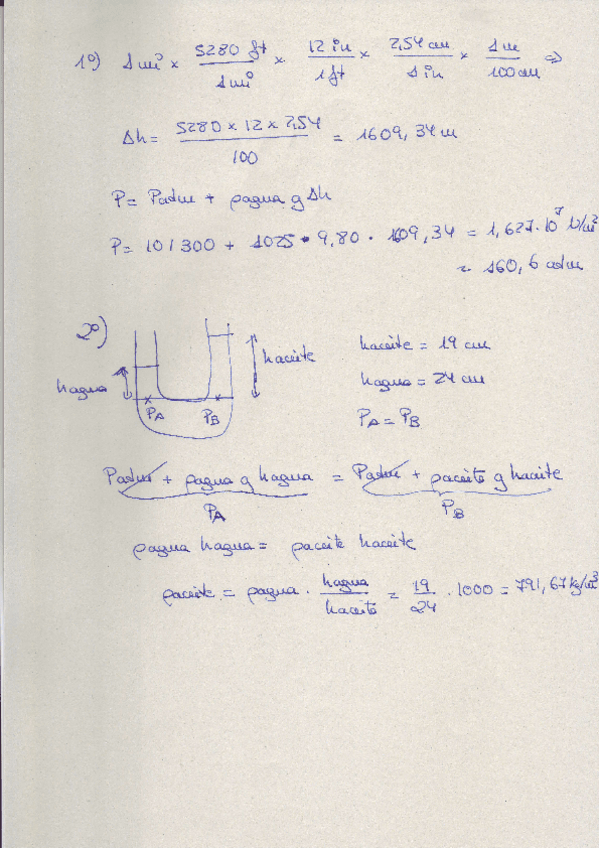 1º) 1 mi × 5280 ft / 1 mi × 12 in / 1 ft × 2,54 cm / 1 in × 1 m / 100 cm ⇒
Δh = 5280 × 12 × 2,54 / 100 = 1609,34 m
P = Patm + ρagua g Δh
P = 101300 + 1025 · 9,80 · 1609,34 = 1,627·10⁷ N/m²
≈ 160,6 atm
2º)
hagua
haceite
PA
PB
haceite = 19 cm
hagua = 24 cm
PA = PB
Patm + ρagua g hagua = Patm + ρaceite g haceite
PA
PB
ρagua hagua = ρaceite haceite
ρaceite = ρagua · hagua / haceite = 19 / 24 · 1000 = 791,67 kg/m³